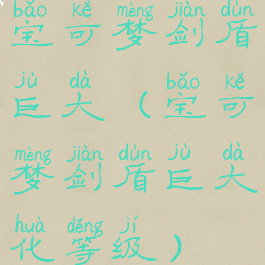 bǎo kě mèng jiàn dùn
宝可梦剑盾
jù dà bǎo kě
巨大（宝可
mèng jiàn dùn jù dà
梦剑盾巨大
huà děng jí
化等级）